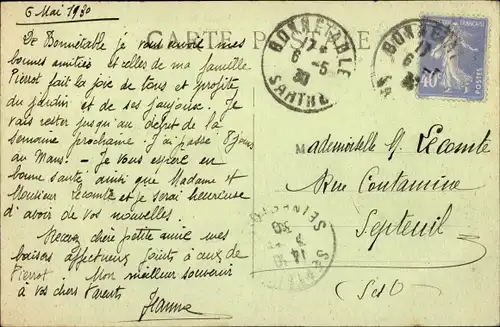 6 Mai 1930
CARTE POSTALE
De Bonnétable je vous envoie mes
bonnes amitiés et celles de ma famille
Pierrot fait la joie de tous et profite
du jardin et de ses joujoux. Je
vais rester jusqu'au début de la
semaine prochaine. J'ai passé 8 jours
au Mans - Je vous espère en
bonne santé ainsi que Madame et
Monsieur Lecomte et je serai heureuse
d'avoir de vos nouvelles.
Recevez chère petite amie mes
baisers affectueux joints à ceux de
Pierrot. Mon meilleur souvenir
à vos chers Parents
Jeanne
BONNETABLE
17
6 -5
30
SARTHE
BONNETA
17
6
SA
40c
POSTES
Mademoiselle M. Lecomte
Rue Contamine
Septeuil
S et O
SEINE
14
30